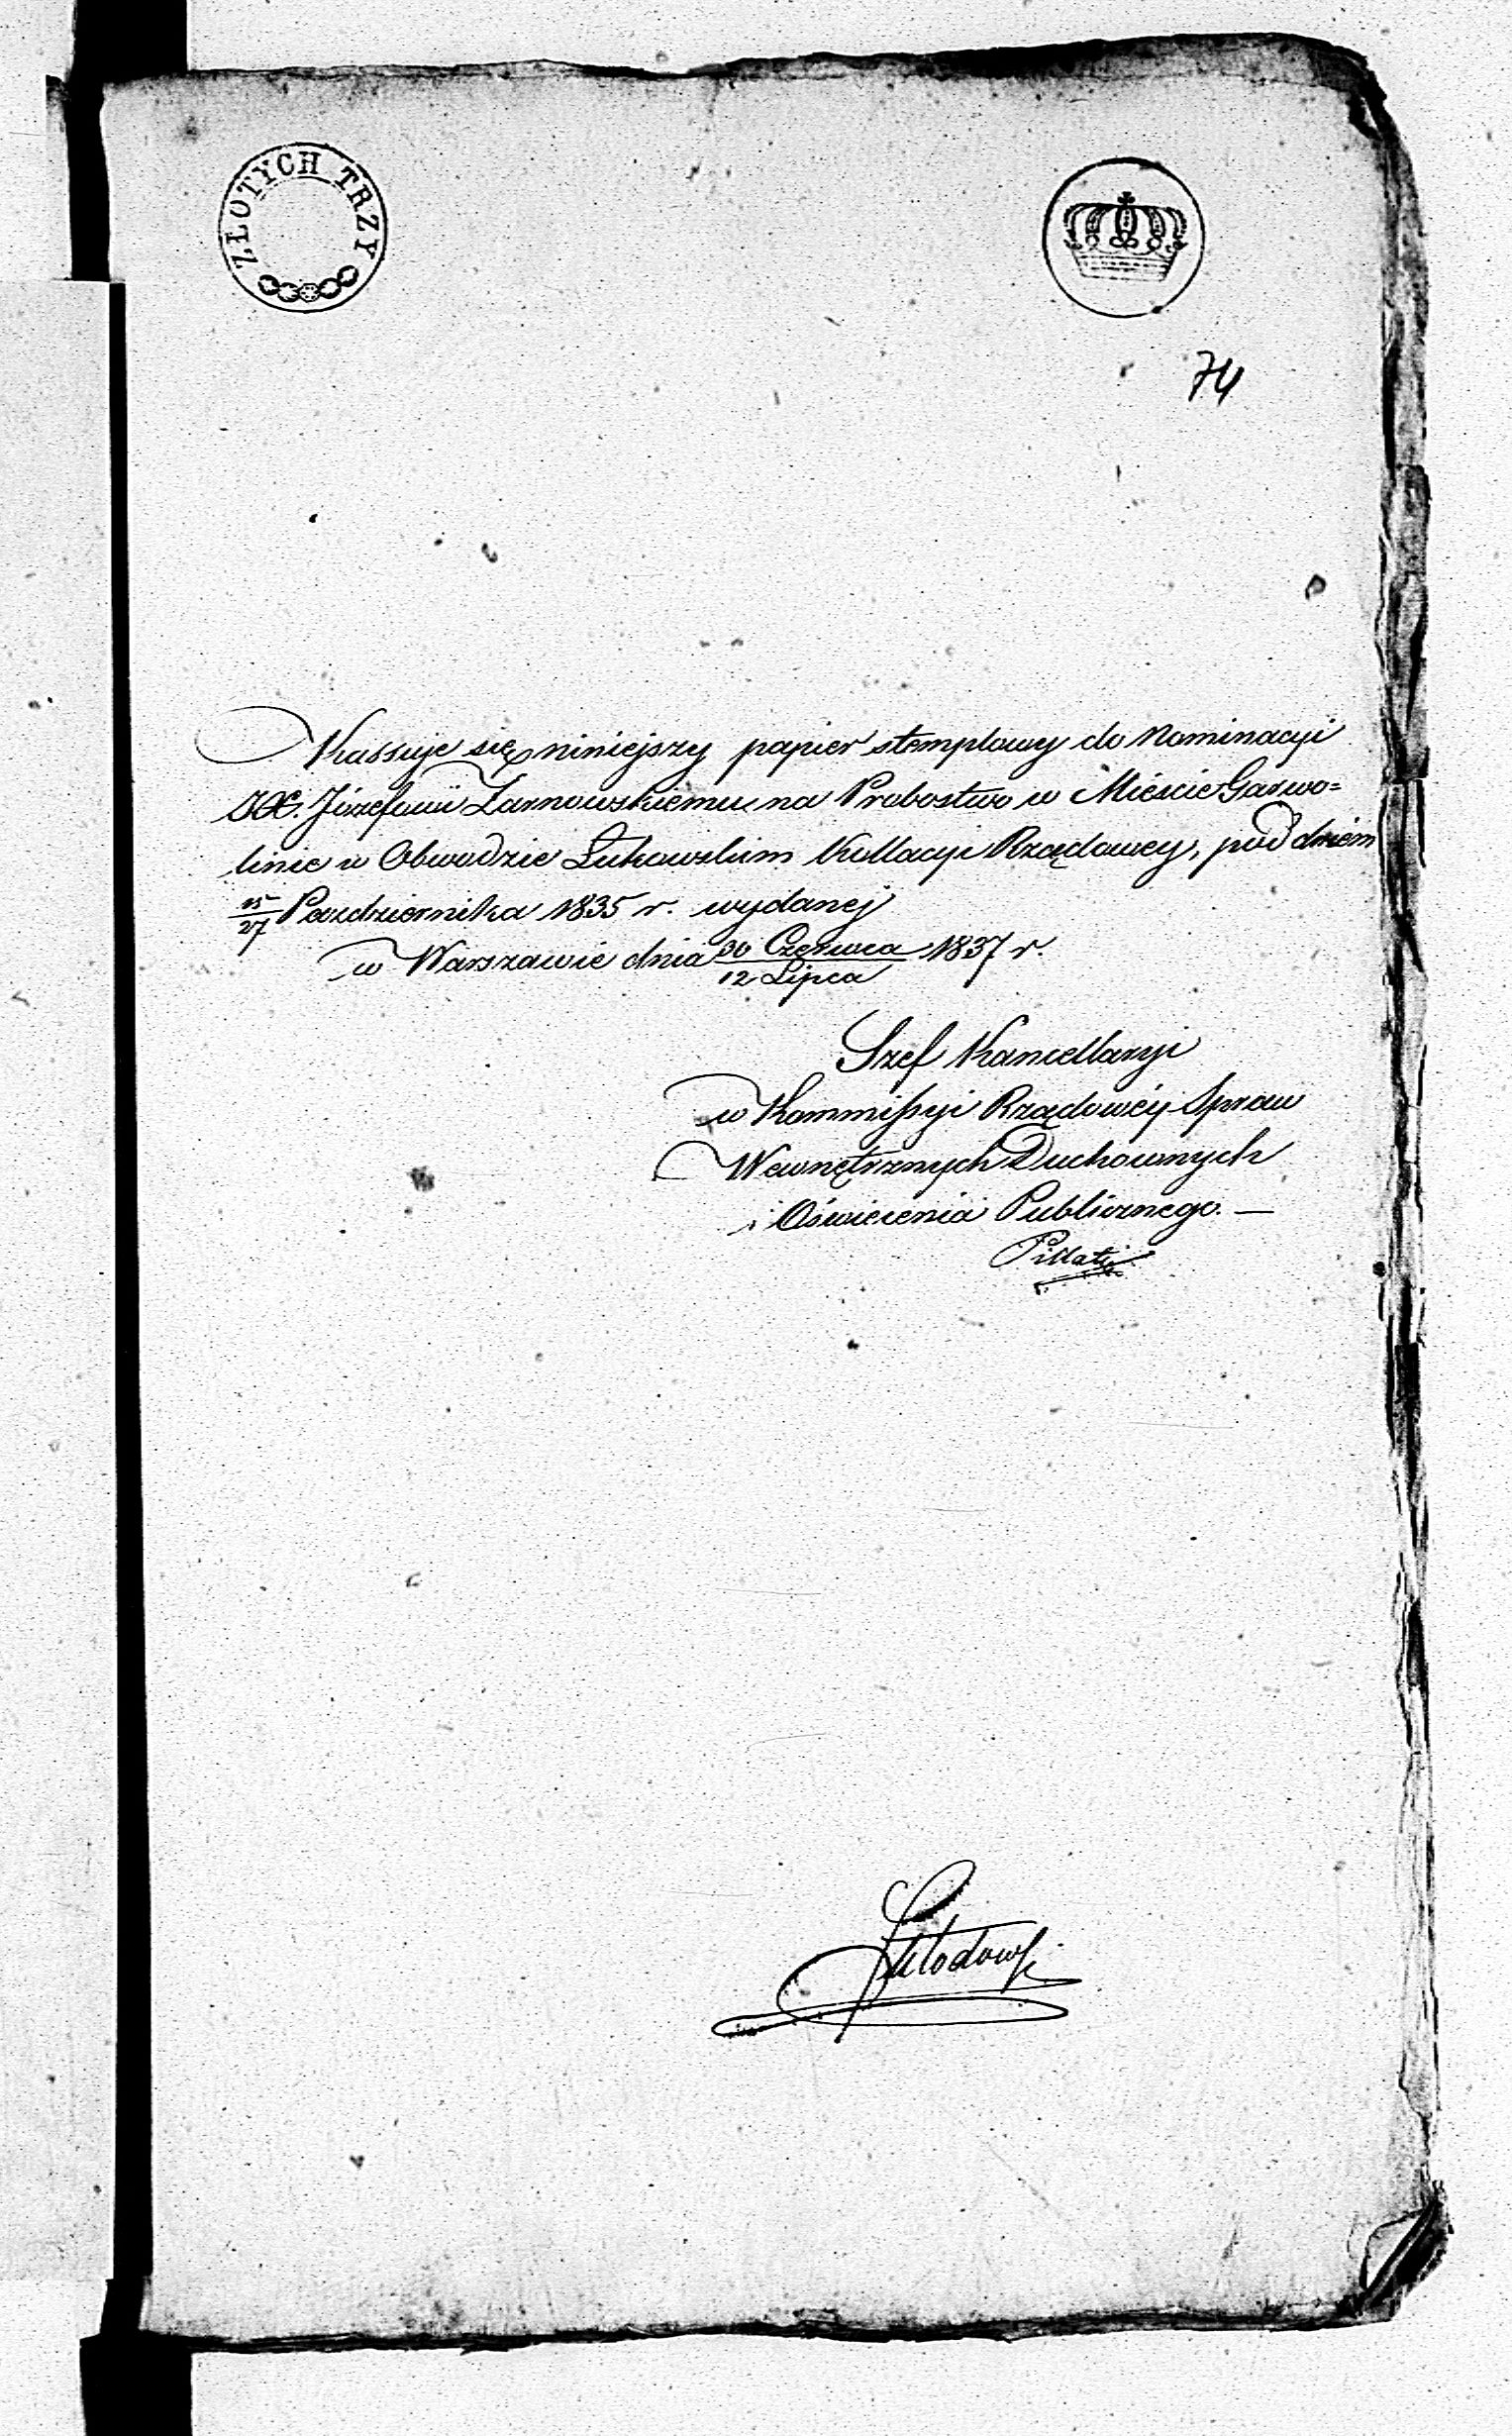 ZŁOTYCH TRZY
74
Kassuje się niniejszy papier stemplowy do Nominacyi
JX. Józefowi Żarnowskiemu na Probostwo w Mieście Garwo=
linie w Obwodzie Łukowskim Kollacyi Rządowey, pod dniem
15/27 Pazdziernika 1835 r. wydanej
w Warszawie dnia 30 Czerwca/12 Lipca 1837 r.
Szef Kancellaryi
w Kommissyi Rządowéy Spraw
Wewnętrznych Duchownych
i Oświecenia Publicznego. —
Pillati